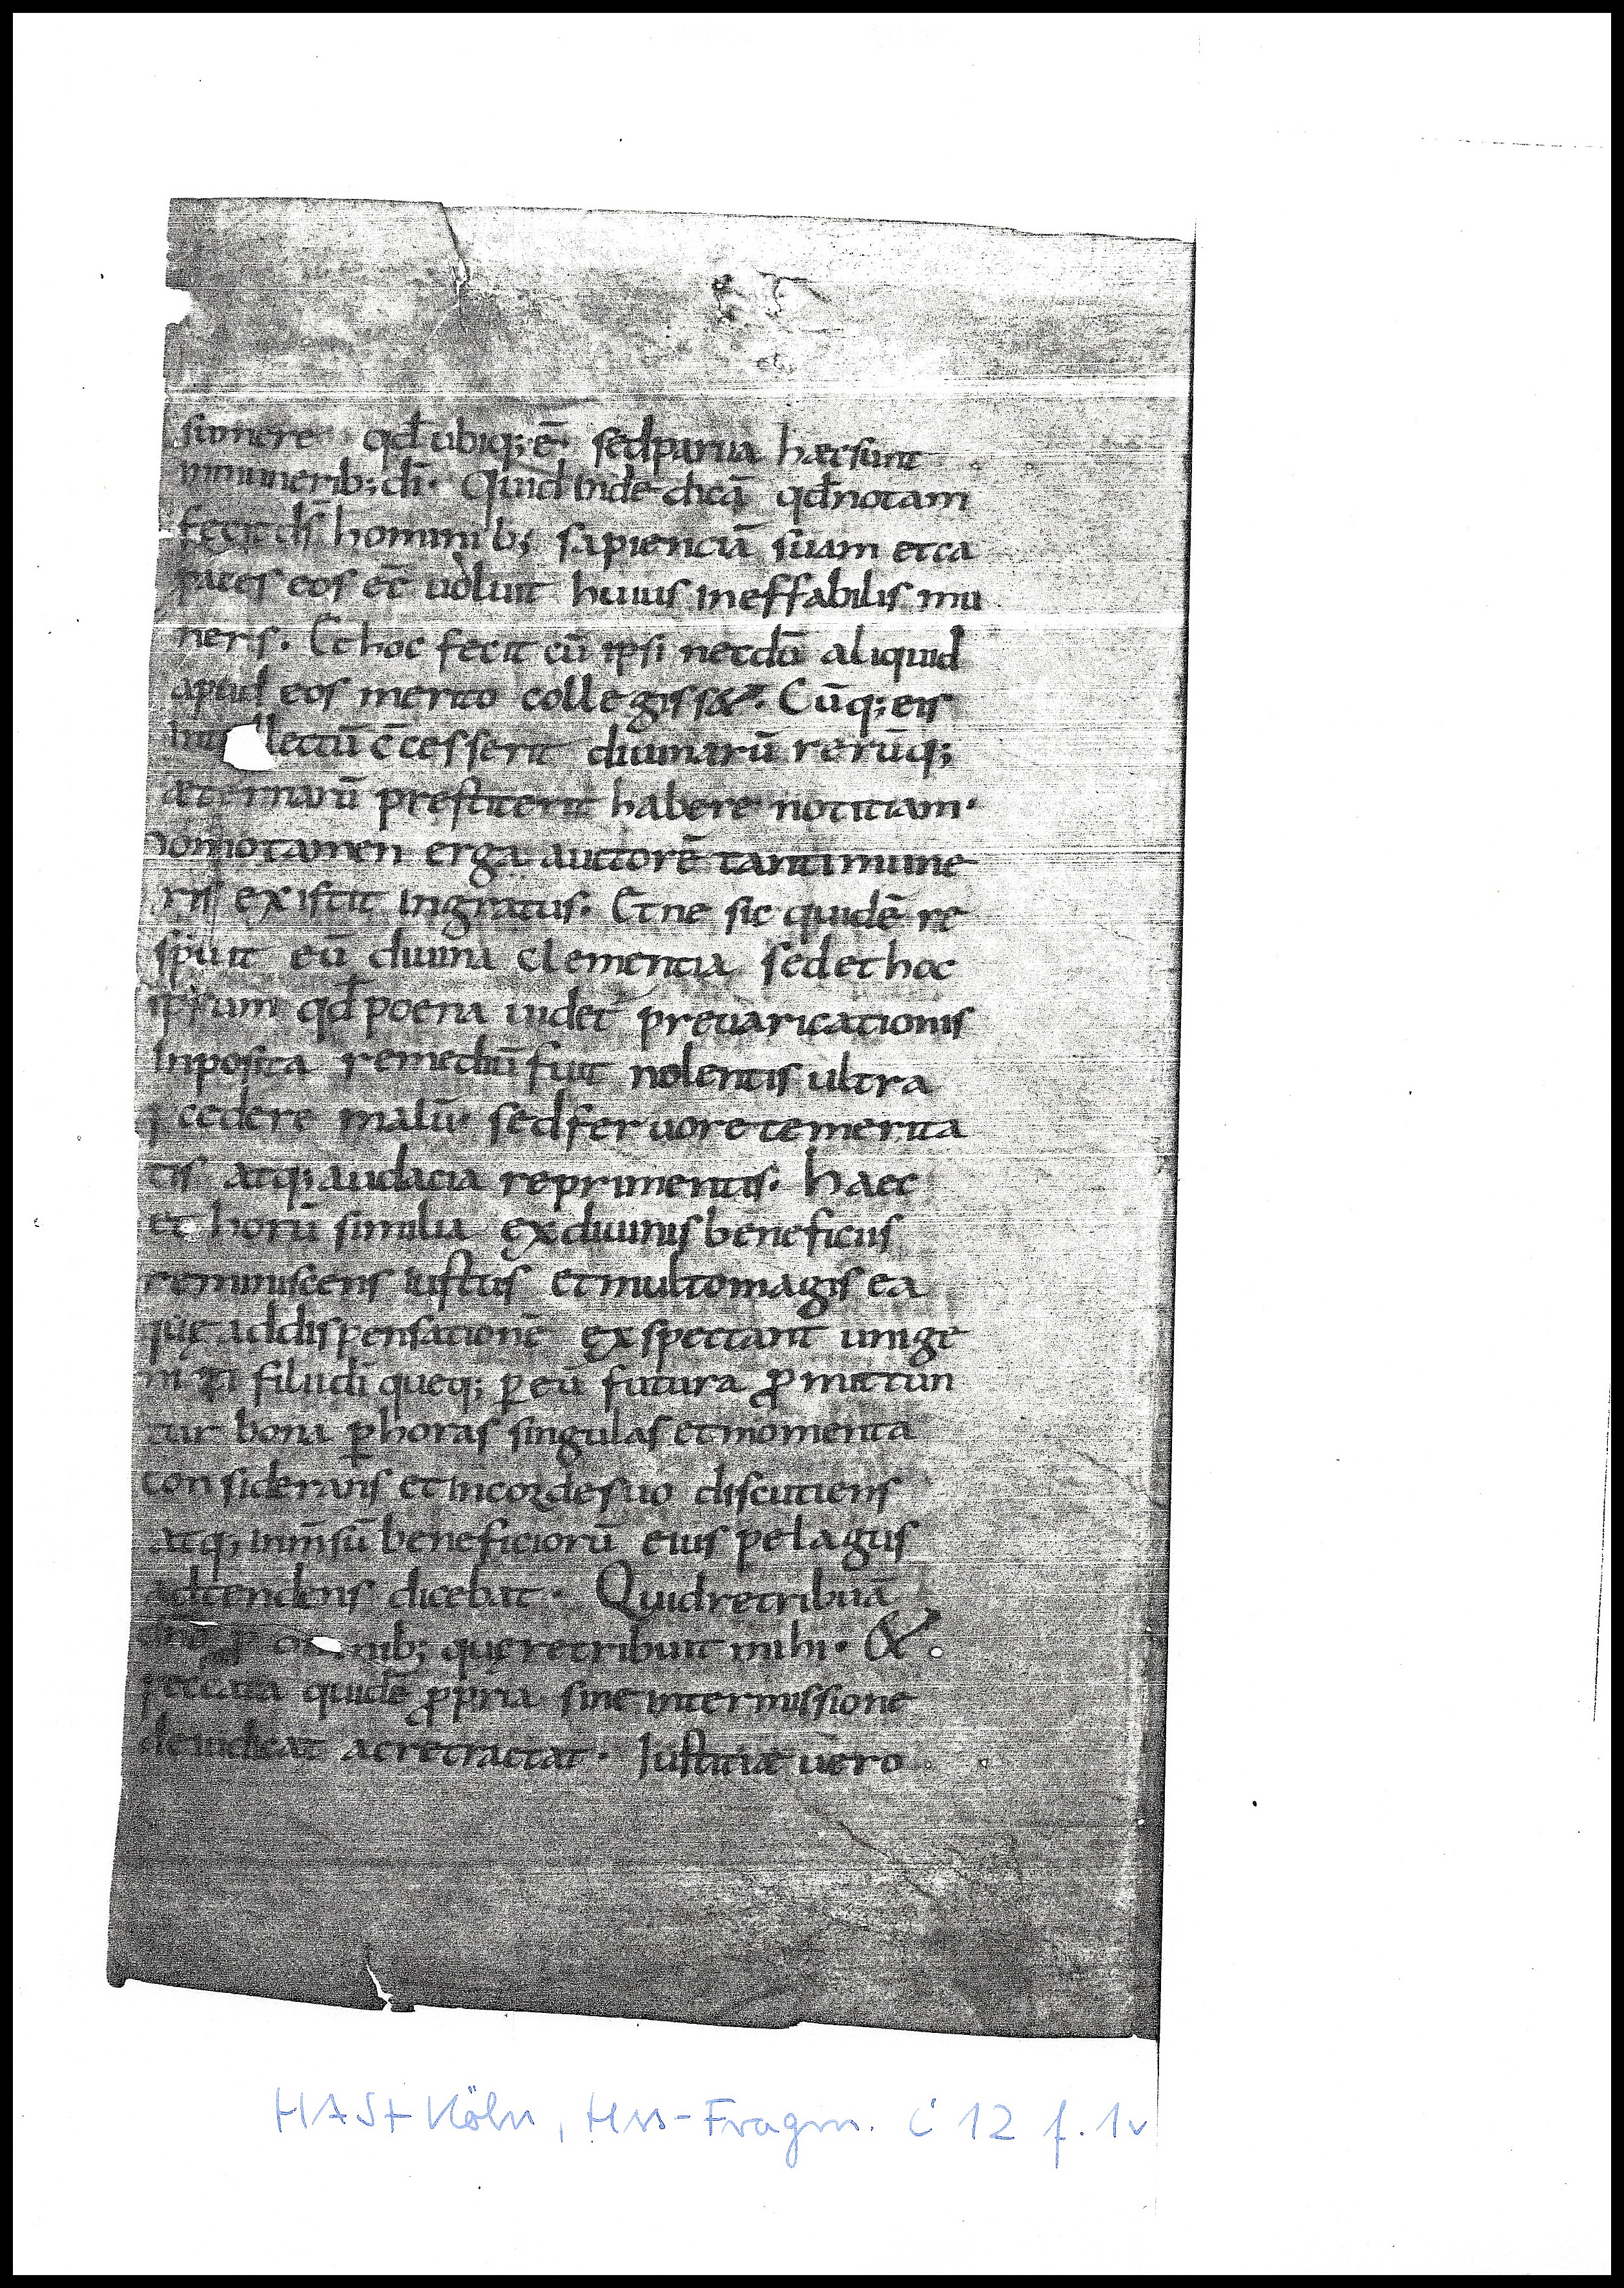 sumere qđ ubiq; ē· sed parua haec sunt
in munerib; dī· Quid inde dicā qđ notam
fecit dī hominib; sapienciā suam et ca
paces eos eē uoluit huius ineffabilis mu
neris. Et hoc fecit cū ipsi necdū aliquid
apud eos merito collegiss&. Cūq; eis
lectū c̄cesserit diuinarū rerūq;
aeternarū prestiterit habere notitiam·
homo tamen erga auctorē tanti mune
ris existit ingratus. Et ne sic quidē re
spuit eū diuina clementia sed et hoc
ipsum qđ poena uidet᷑ preuaricationis
inposita remediū fuit nolentis ultra
cedere malū· sed feruore temerita
tis atq; audacia reprimentis. haec
et horū similia ex diuinis beneficiis
reminiscens iustus et multo magis ea
quę ad dispensationē exspectant unige
ni filii dī queq; ꝑ eū futura ꝓmittun
tur bona ꝑ horas singulas et momenta
considerans et in corde suo discutiens
atq; inm̄sū beneficiorū eius pelagus
adtendens dicebat· Quid retribuā
dn̄o ꝓ omnib; quę retribuit mihi· &
peccata quidē ꝓpria sine intermissione
deiudicat ac retractat· Iustitiae uero
HASt Köln, Hss-Fragm. C 12 f. 1v